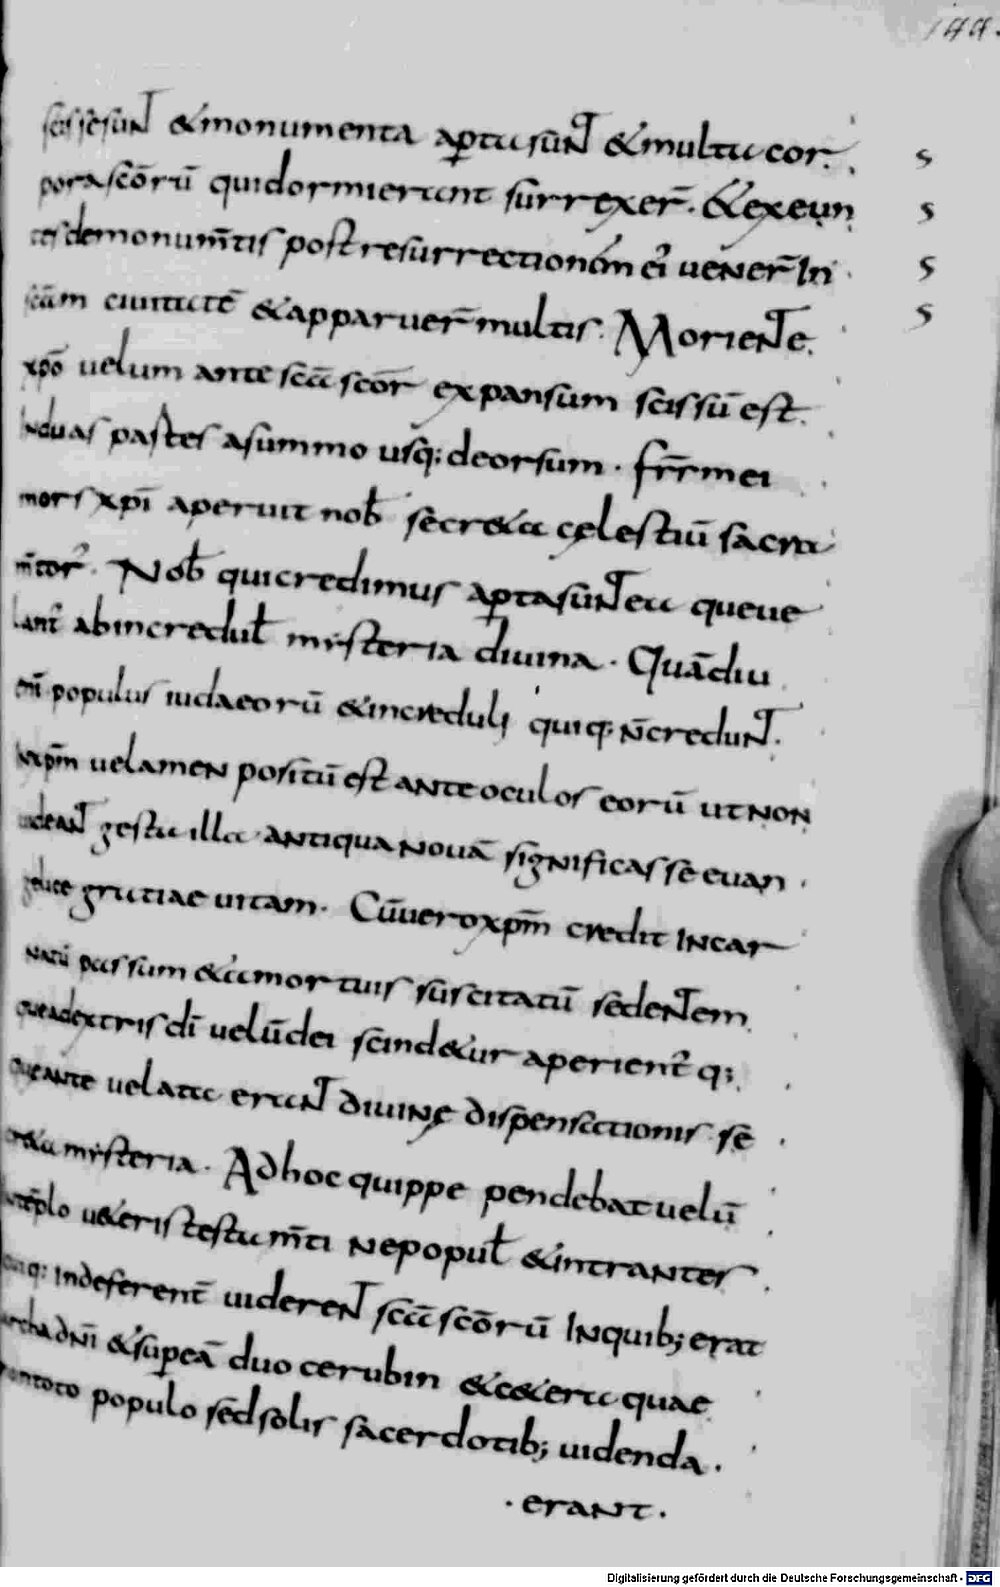 144.
scissesunt & monumenta apta sunt & multa cor
pora scōrū qui dormierunt surrexer̄. & exeun
tes de monum̄tis post resurrectionem ei' uener̄ In
scām ciuitatē & apparuer̄ multis. Moriente
xpō uelum ante scā scōr expansum scissū est
In duas partes a summo usq; deorsum. fr̄r mei
mors xpī aperuit nob̄ secr&a cęlestiū sacra
m̄tor̄. Nob̄ qui credimus apta sunt ea que ue
lant̄ ab incredul̄ mysteria diuina. Quādiu
eni populus iudaeorū & increduli quiq; n̄ credunt
In xpm̄ uelamen positū est ante oculos eorū ut non
uideant gesta illa antiqua nouā significasse euan
gelice gratiae uitam. Cūuero xpm̄ credit Incar
natū passum & a mortuis suscitatū sedentem
que ad extris dī uelū dei scind&ur aperient̄ q;
que ante uelata erunt diuinę dispensationis se
cr&a mysteria. Ad hoc quippe pendebat uelū
In tēplo u&eris testam̄ti ne popul̄ & intrantes
quiq; inde ferent̄ uiderent scā scōrū In quib; erat
archa dn̄i & sup eā duo cerubin & c&era quae
non toto populo sed solis sacerdotib; uidenda.
. erant .
s
s
s
s
Digitalisierung gefördert durch die Deutsche Forschungsgemeinschaft - DFG